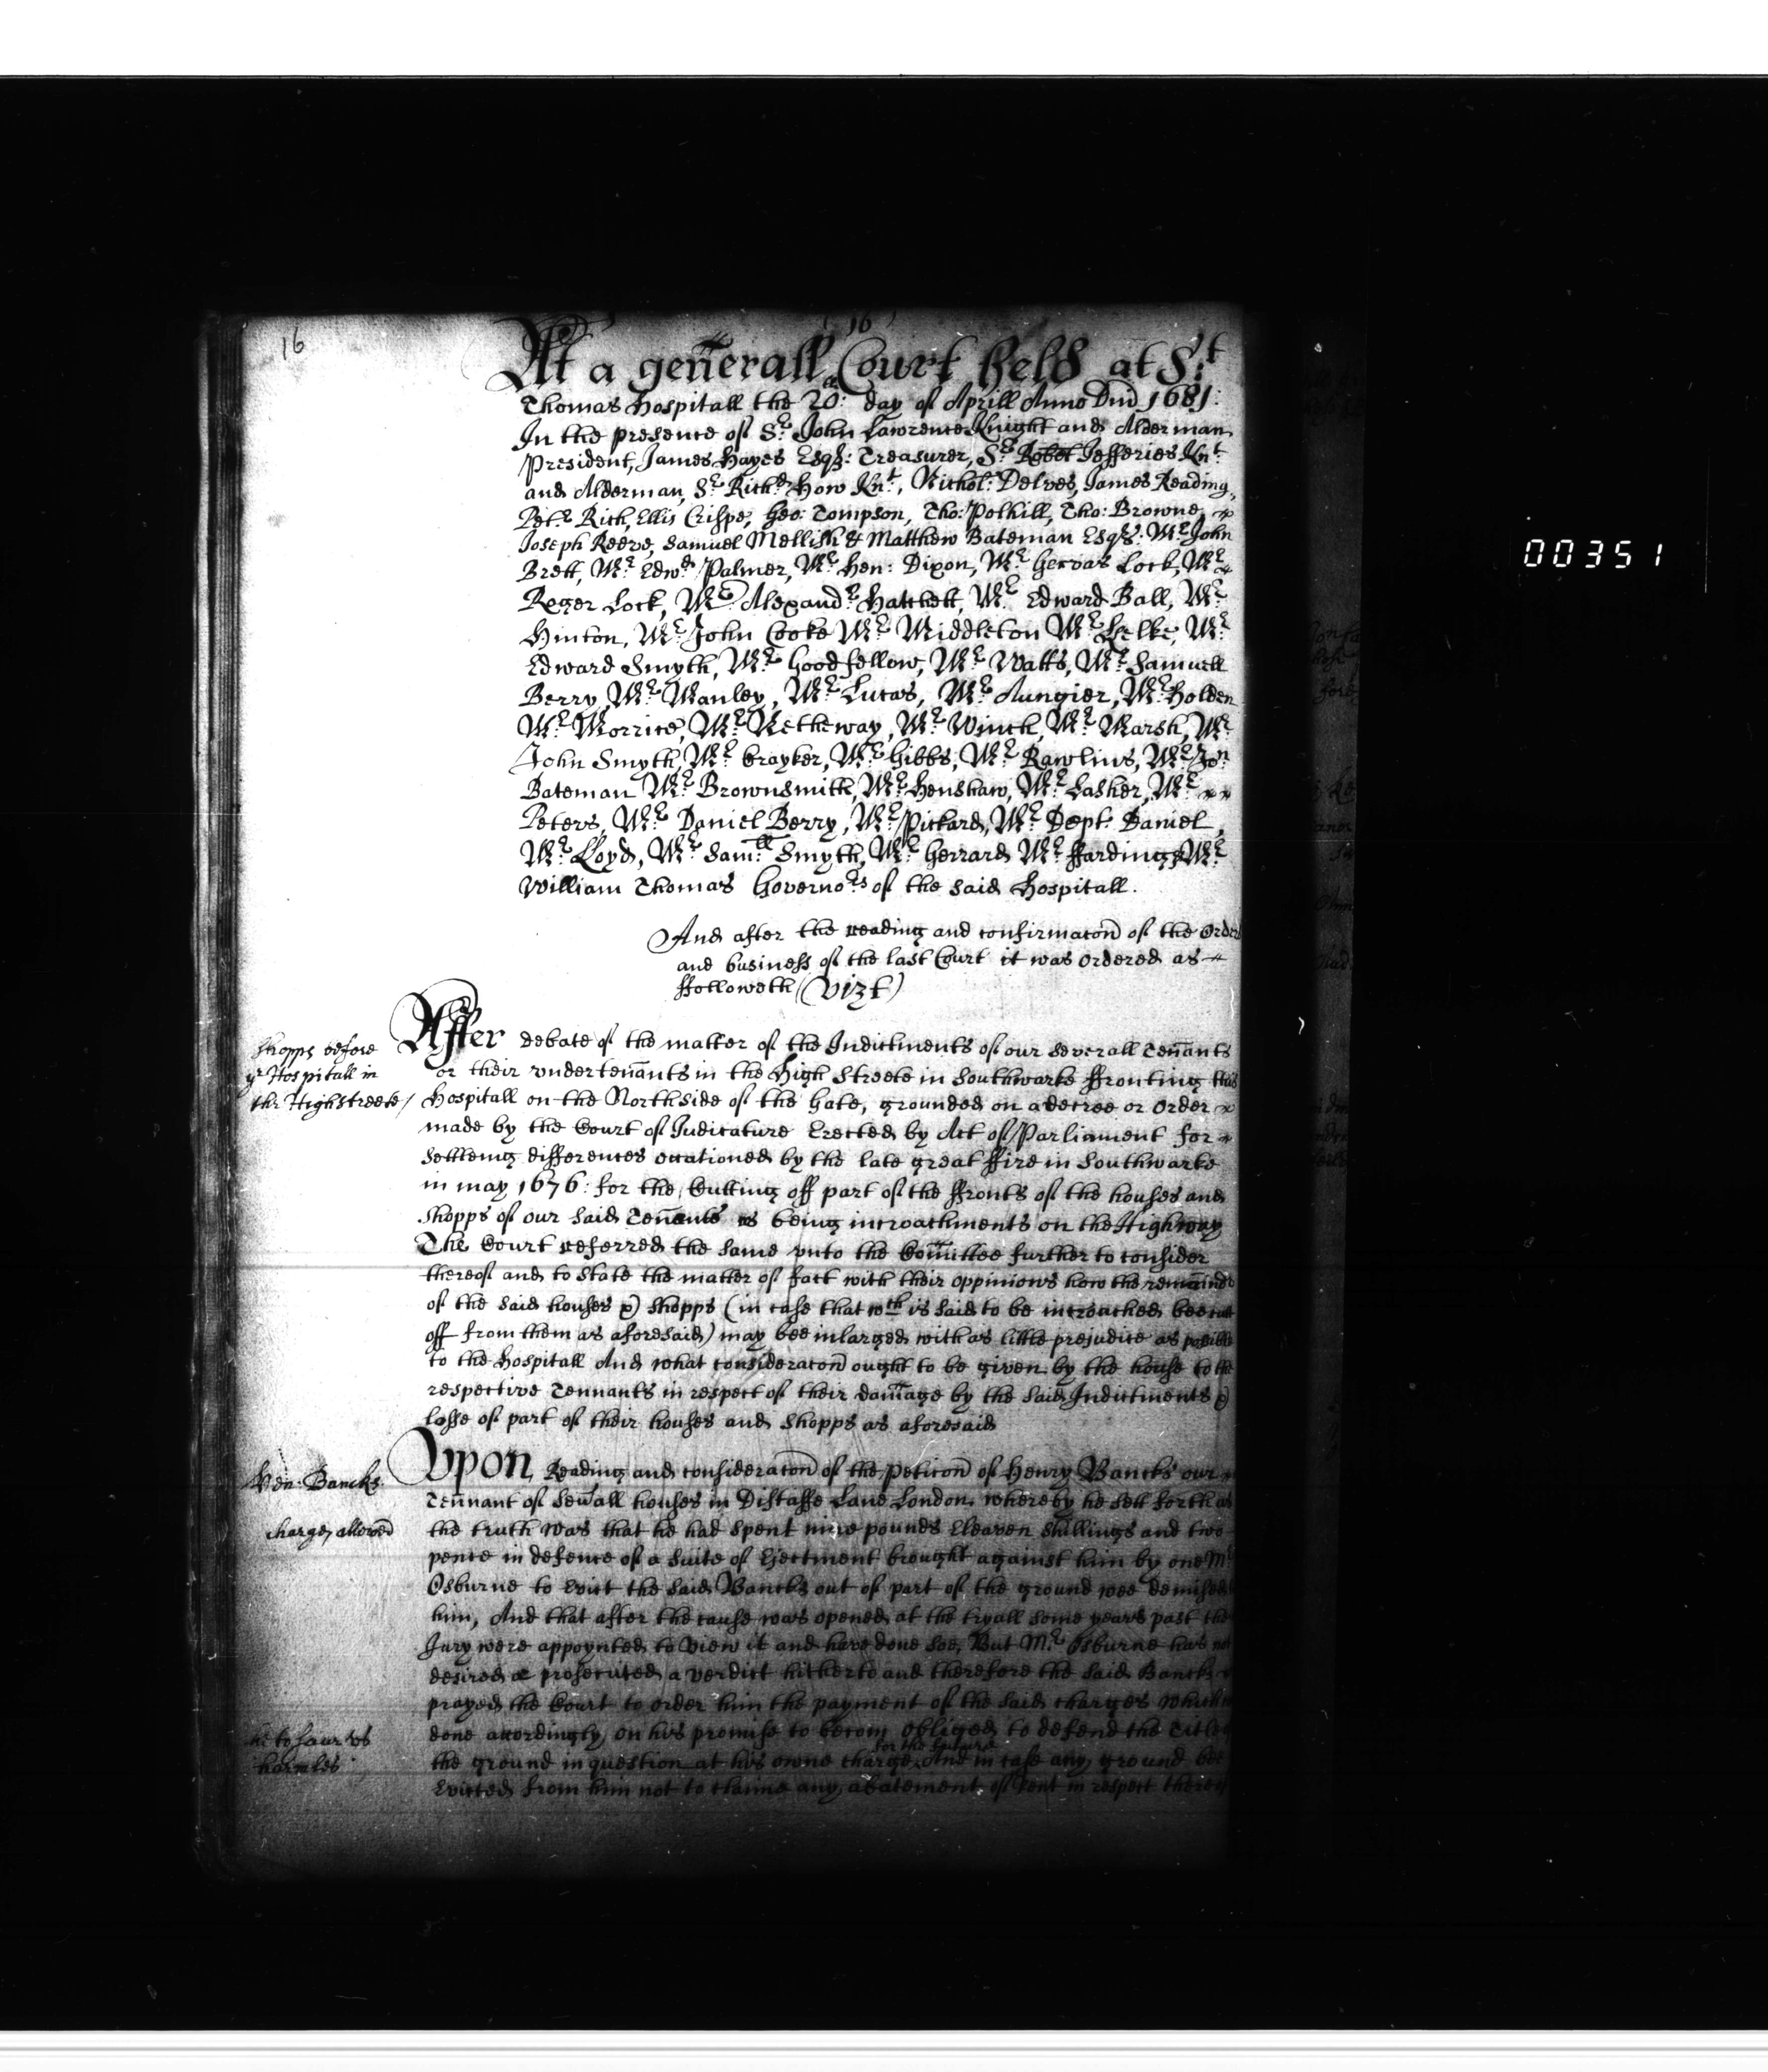 16
( 16 )
At a generall Court held at St:
Thomas Hospitall the 20th: day of Aprill Anno Dni 1681:
In the presence of Sr: John Lawrence Knight and Alderman
President, James Hayes Esqr: Treasurer, Sr: Robet Jefferies Knt:
and Alderman, Sr: Richd: How Knt:, Nichol: Delves, James Reading,
Petr: Rich, Ellis Crispe, Geo: Tompson, Tho: Polhill, Tho: Browne
Joseph Reeve, Samuel Mellish & Matthew Bateman Esqrs: Mr: John
Brett, Mr: Edwd: Palmer, Mr: Hen: Dixon, Mr: Gervas Lock, Mr:
Roger Lock, Mr: Alexandr: Hatchett, Mr: Edward Ball, Mr:
Hinton, Mr: John Cooke Mr: Middleton Mr: Mr:
Edward Smyth, Mr: Goodfellow, Mr: Watts, Mr: Samuell
Berry, Mr: Manley, Mr: Lucas, Mr: Aungier, Mr: Holden
Mr: Morrice, Mr: Netheway, Mr: Winch, Mr: Marsh, Mr:
John Smyth, Mr: Grayker, Mr: Gibbs, Mr: Rawlins, Mr: Jon:
Bateman Mr: Brownsmith, Mr: Henshaw, Mr: Lasher, Mr:
Peters, Mr: Daniel Berry, Mr: Pickard, Mr: Dept: Daniel,
Mr: Lloyd, Mr: Samll: Smyth, Mr: Gerrard Mr: ffarding & Mr:
William Thomas Governors of the said Hospitall.
And after the reading and confirmacon of the Order
and business of the last Court it was ordered as
ffolloweth (Vizt)
Shopps before
ye Hospitall in
the Highstreete/
After debate of the matter of the Indictments of our severall Tennants
or their undertennants in the High Streete in Southwarke ffronting this
Hospitall on the Northside of the Gate, grounded on a decree or order
made by the Court of Judicature Erected by Act of Parliament for
setteing differences occationed by the late great ffire in Southwarke
in may 1676: for the Cutting off part of the ffronts of the houses and
Shopps of our said Tennants as being incroachments on the Highway
The Court referred the same unto the Comittee further to consider
thereof and to State the matter of fact with their oppinions how the remainder
of the said houses & Shopps (in case that wch is said to be incroached bee cutt
off from them as aforesaid) may bee inlarged with as little prejudice as posible
to the Hospitall And what consideracon ought to be given by the house to the
respective Tennants in respect of their damage by the said Indictments &
losse of part of their houses and Shopps as aforesaid
Hen: Bancks
charge allowed
Upon Reading and consideracon of the Peticon of Henry Bancks our
Tennant of sevall houses in Distaffe Lane London whereby he sett forth as
the truth was that he had spent nine pounds Eleaven shillings and two
pence in defence of a suite of Ejectment brought against him by one Mr
Osburne to Evict the said Bancks out of part of the ground wee demised
him, And that after the cause was opened at the tryall some years past the
Jury were appoynted to view it and have done soe, But Mr: Osburne has not
desired or prosecuted a verdict hitherto and therefore the said Bancks
prayed the Court to order him the payment of the said charges which
done accordingly on his promise to becom obliged to defend the Title
he to save us
harmles
for the future
the ground in question at his owne charge And in case any ground bee
Evicted from him not to claime any abatement of Rent in respect thereof
00351